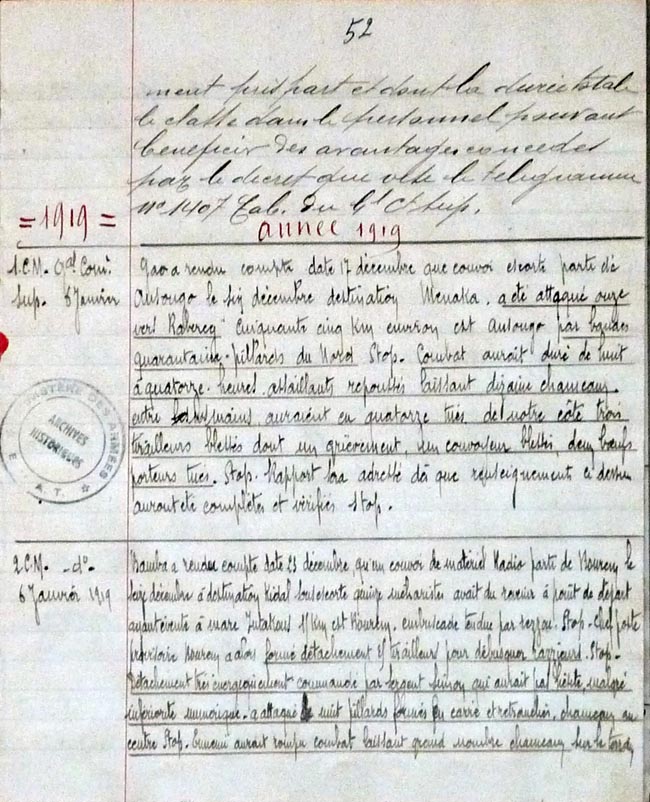 52
ment pris part et dont la durée totale
le classe dans le personnel pouvant
beneficier des avantages concedes
par le decret que vise le telegramme
n° 1407 Cab. du Gl Ct Sup.
= 1919 =
année 1919
1.C.M. Gal Com.
Sup. 6 Janvier
Gao a rendu compte date 17 décembre que convoi escorte parti de
Ansongo le six décembre destination Menaka, a été attaqué onze
vers Kabereg Cinquante cinq Km environ est Ansongo par bandes
quarantaine pillards du Nord Stop. Combat aurait duré de huit
à quatorze heures assaillants repoussés laissant dizaine chameaux
entre mains, auraient eu quatorze tués de notre côté trois
tirailleurs blessés dont un grièvement, un convoyeur blessé, deux bœufs
porteurs tués. Stop. Rapport sera adressé dès que renseignements ci dessus
auront été complétés et vérifiés Stop.
MINISTERE DES ARMEES
ARCHIVES
HISTORIQUES
E. A. T.
2.C.M. -d°-
6 Janvier 1919
Bamba a rendu compte date 23 décembre qu'un convoi de matériel Radio parti de Bourem le
seize décembre à destination Kidal sous escorte quinze méharistes avait du revenir à point de départ
ayant éventé à mare Km est Bourem, embuscade tendue par rezzou. Stop. Chef poste
provisoire Bourem a alors formé détachement tirailleurs pour débusquer razzieurs. Stop.
Détachement très énergiquement commandé par sergent qui aurait pas hésité, malgré
infériorité numérique, a attaqué huit pillards formés en carré et retranchés, chameaux au
centre Stop. Ennemi aurait rompu combat laissant grand nombre chameaux sur le terrain